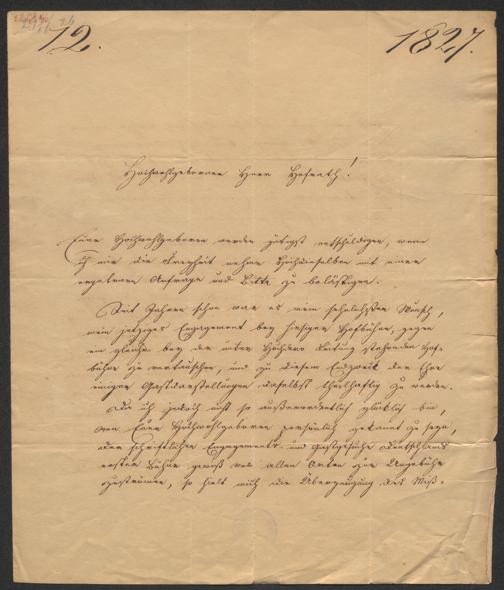 12.
1827.
Hochwohlgeborner Herr Hofrath!
Euer Hochwohlgeboren werden gütigst entschuldigen, wenn
ich mir die Freyheit nehme Hochdieselben mit einer
ergebenen Anfrage und Bitte zu belästigen.
Seit Jahren schon war es mein sehnlichster Wunsch,
mein jetziges Engagement bey hiesiger Hofbühne, gegen
ein gleiches bey der unter Hochdero Leitung stehenden Hof-
bühne zu vertauschen, und zu diesem Endzweck der Ehre
einiger Gastdarstellungen daselbst theilhaftig zu werden.
Da ich jedoch nicht so außerordentlich glücklich bin,
von Euer Hochwohlgeboren persönlich gekannt zu seyn,
die schriftlichen Engagements- und Gastgesuche Deutschlands
ersten Bühne gewiß von allen Orten zur Ungebühr
zuströmen, so hielt mich die Überzeugung des Miß-